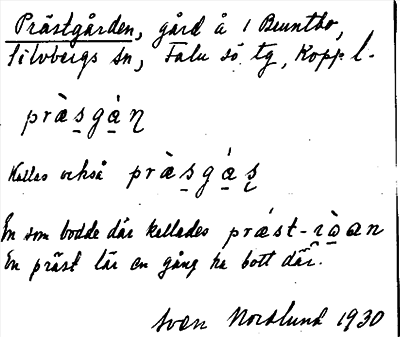 Prästgården, gård å 1 Bruntbo,
Silvbergs sn, Falu sö tg, Kopp l.
prà̀sgàn
Kallas också pràsgás
En som bodde där kallades prást-ràan
En präst lär en gång ha bott där.
Sven Nordlund 1930